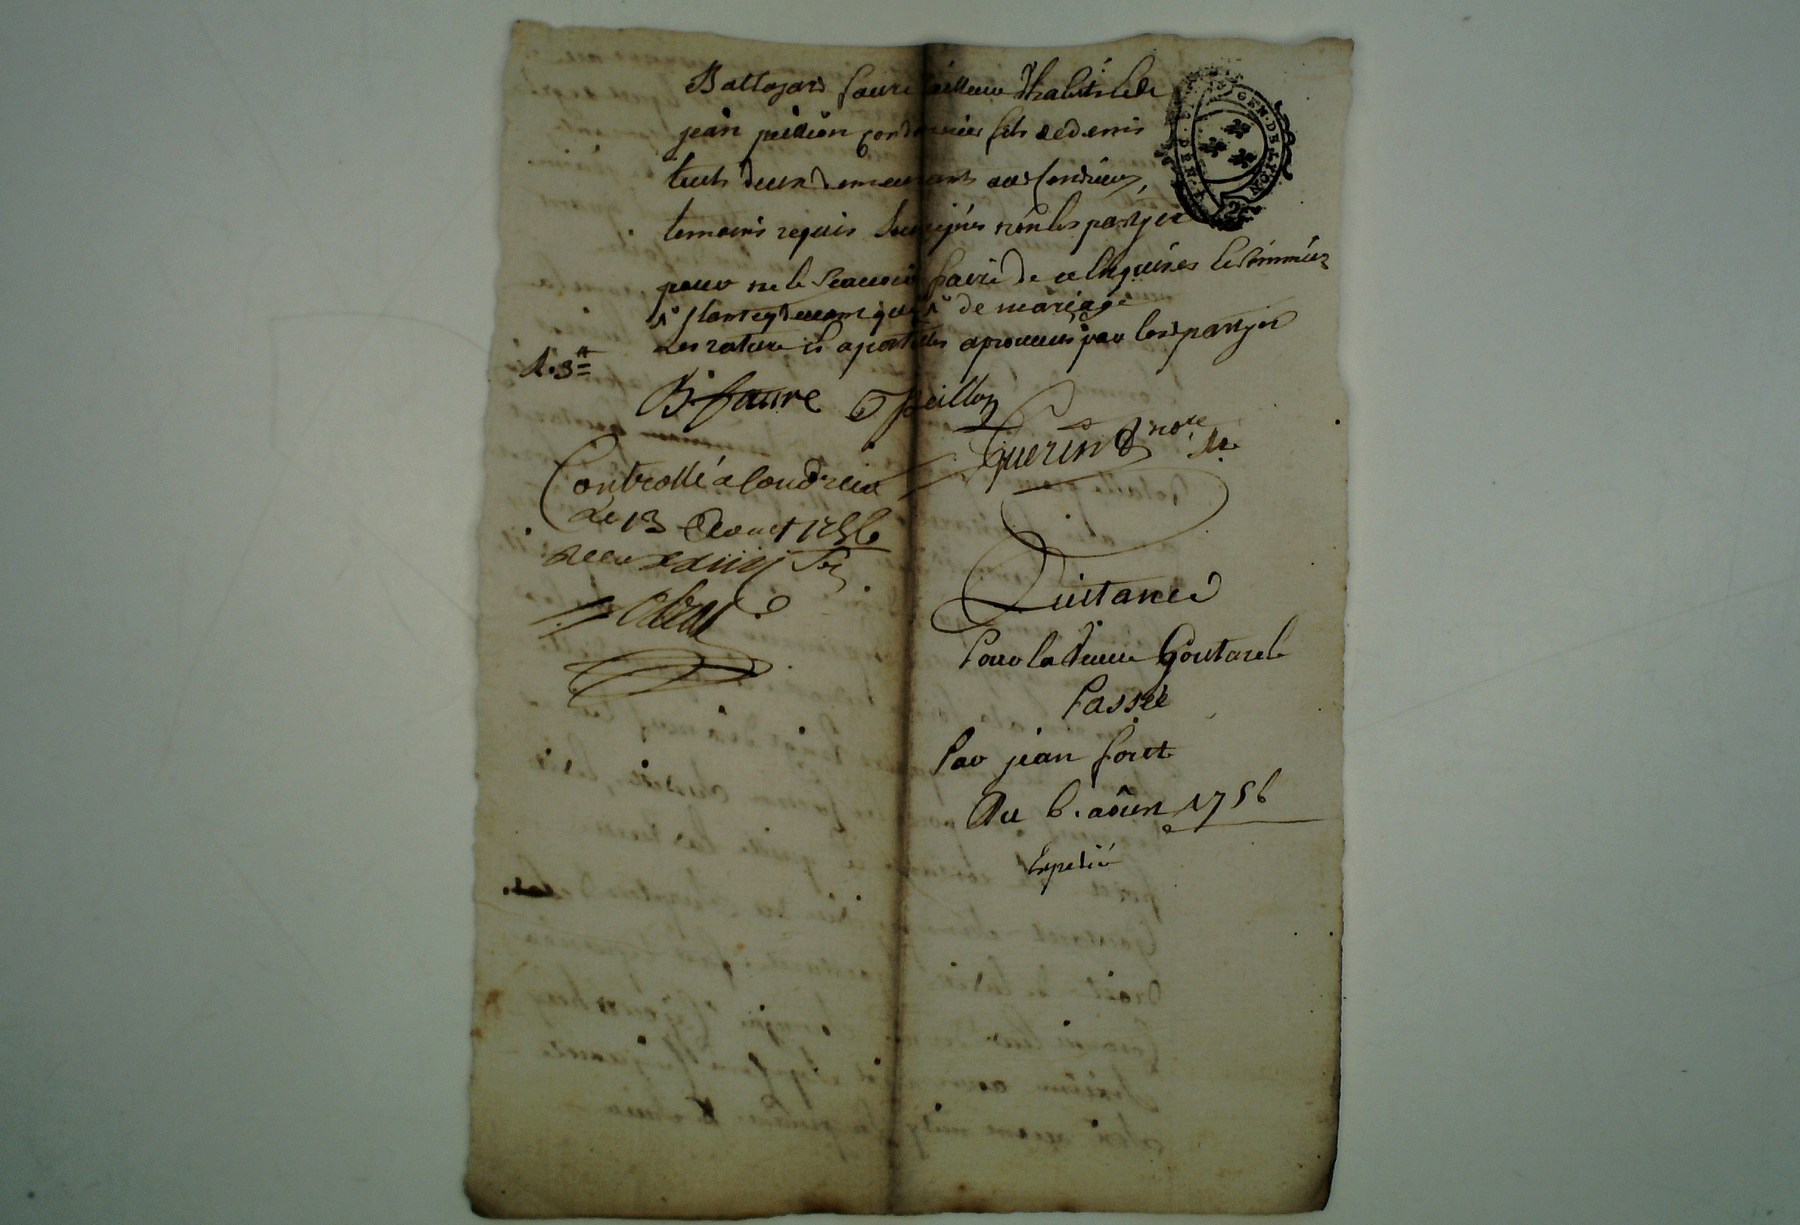 Baltazard faure tailleur d'habits et
jean peillion cordonnier fils de denis
touts deux demeurants aud Condrieux,
temoins requis soussignés non les partyes
pour ne le scavoir faire de ce enquises et sommées
de mariage
les rature et apostilles aprouvés par les partyes
B. faure J peillon
Guerin nore
Controllé a Condrieu
Le 13 Aoust 1756
GEN. DE LYON
Quitance
Pour la veuve Goutarel
Passée
Par jean foret
Du 6. aoust 1756
Expedié